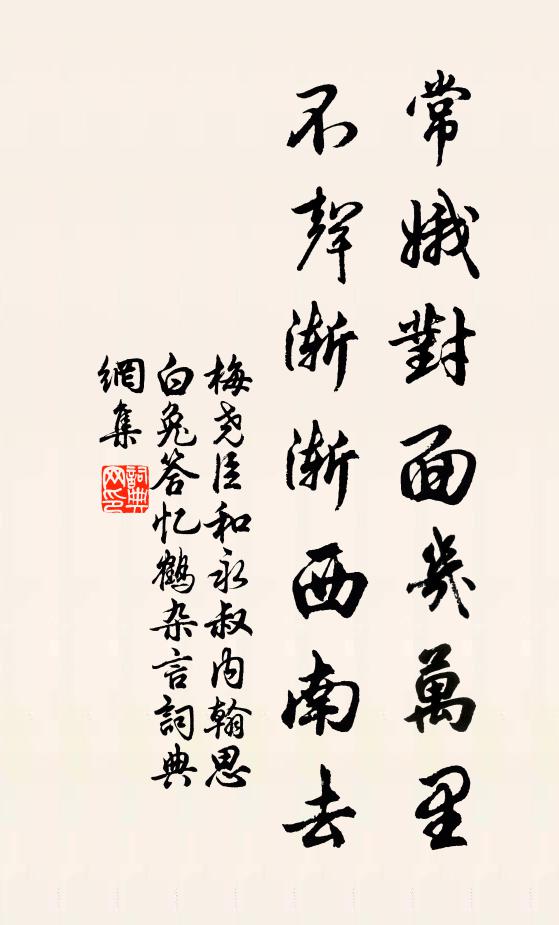 常娥對面幾萬里
不聲漸漸西南去
梅尧臣和永叔内翰思
白兔答忆鶴杂言詞典
網集
詞典网印